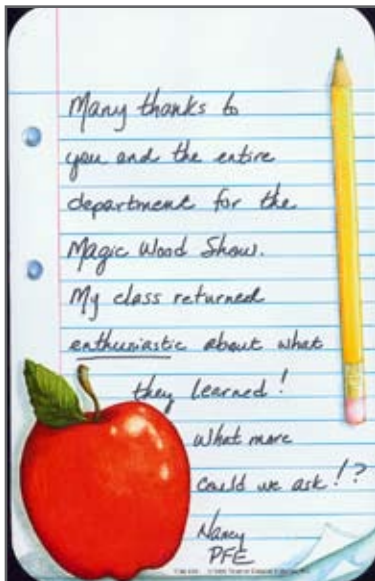 Many thanks to
you and the entire
department for the
Magic Wood Show.
My class returned
enthusiastic about what
they learned!
What more
could we ask!?
Nancy
PFE